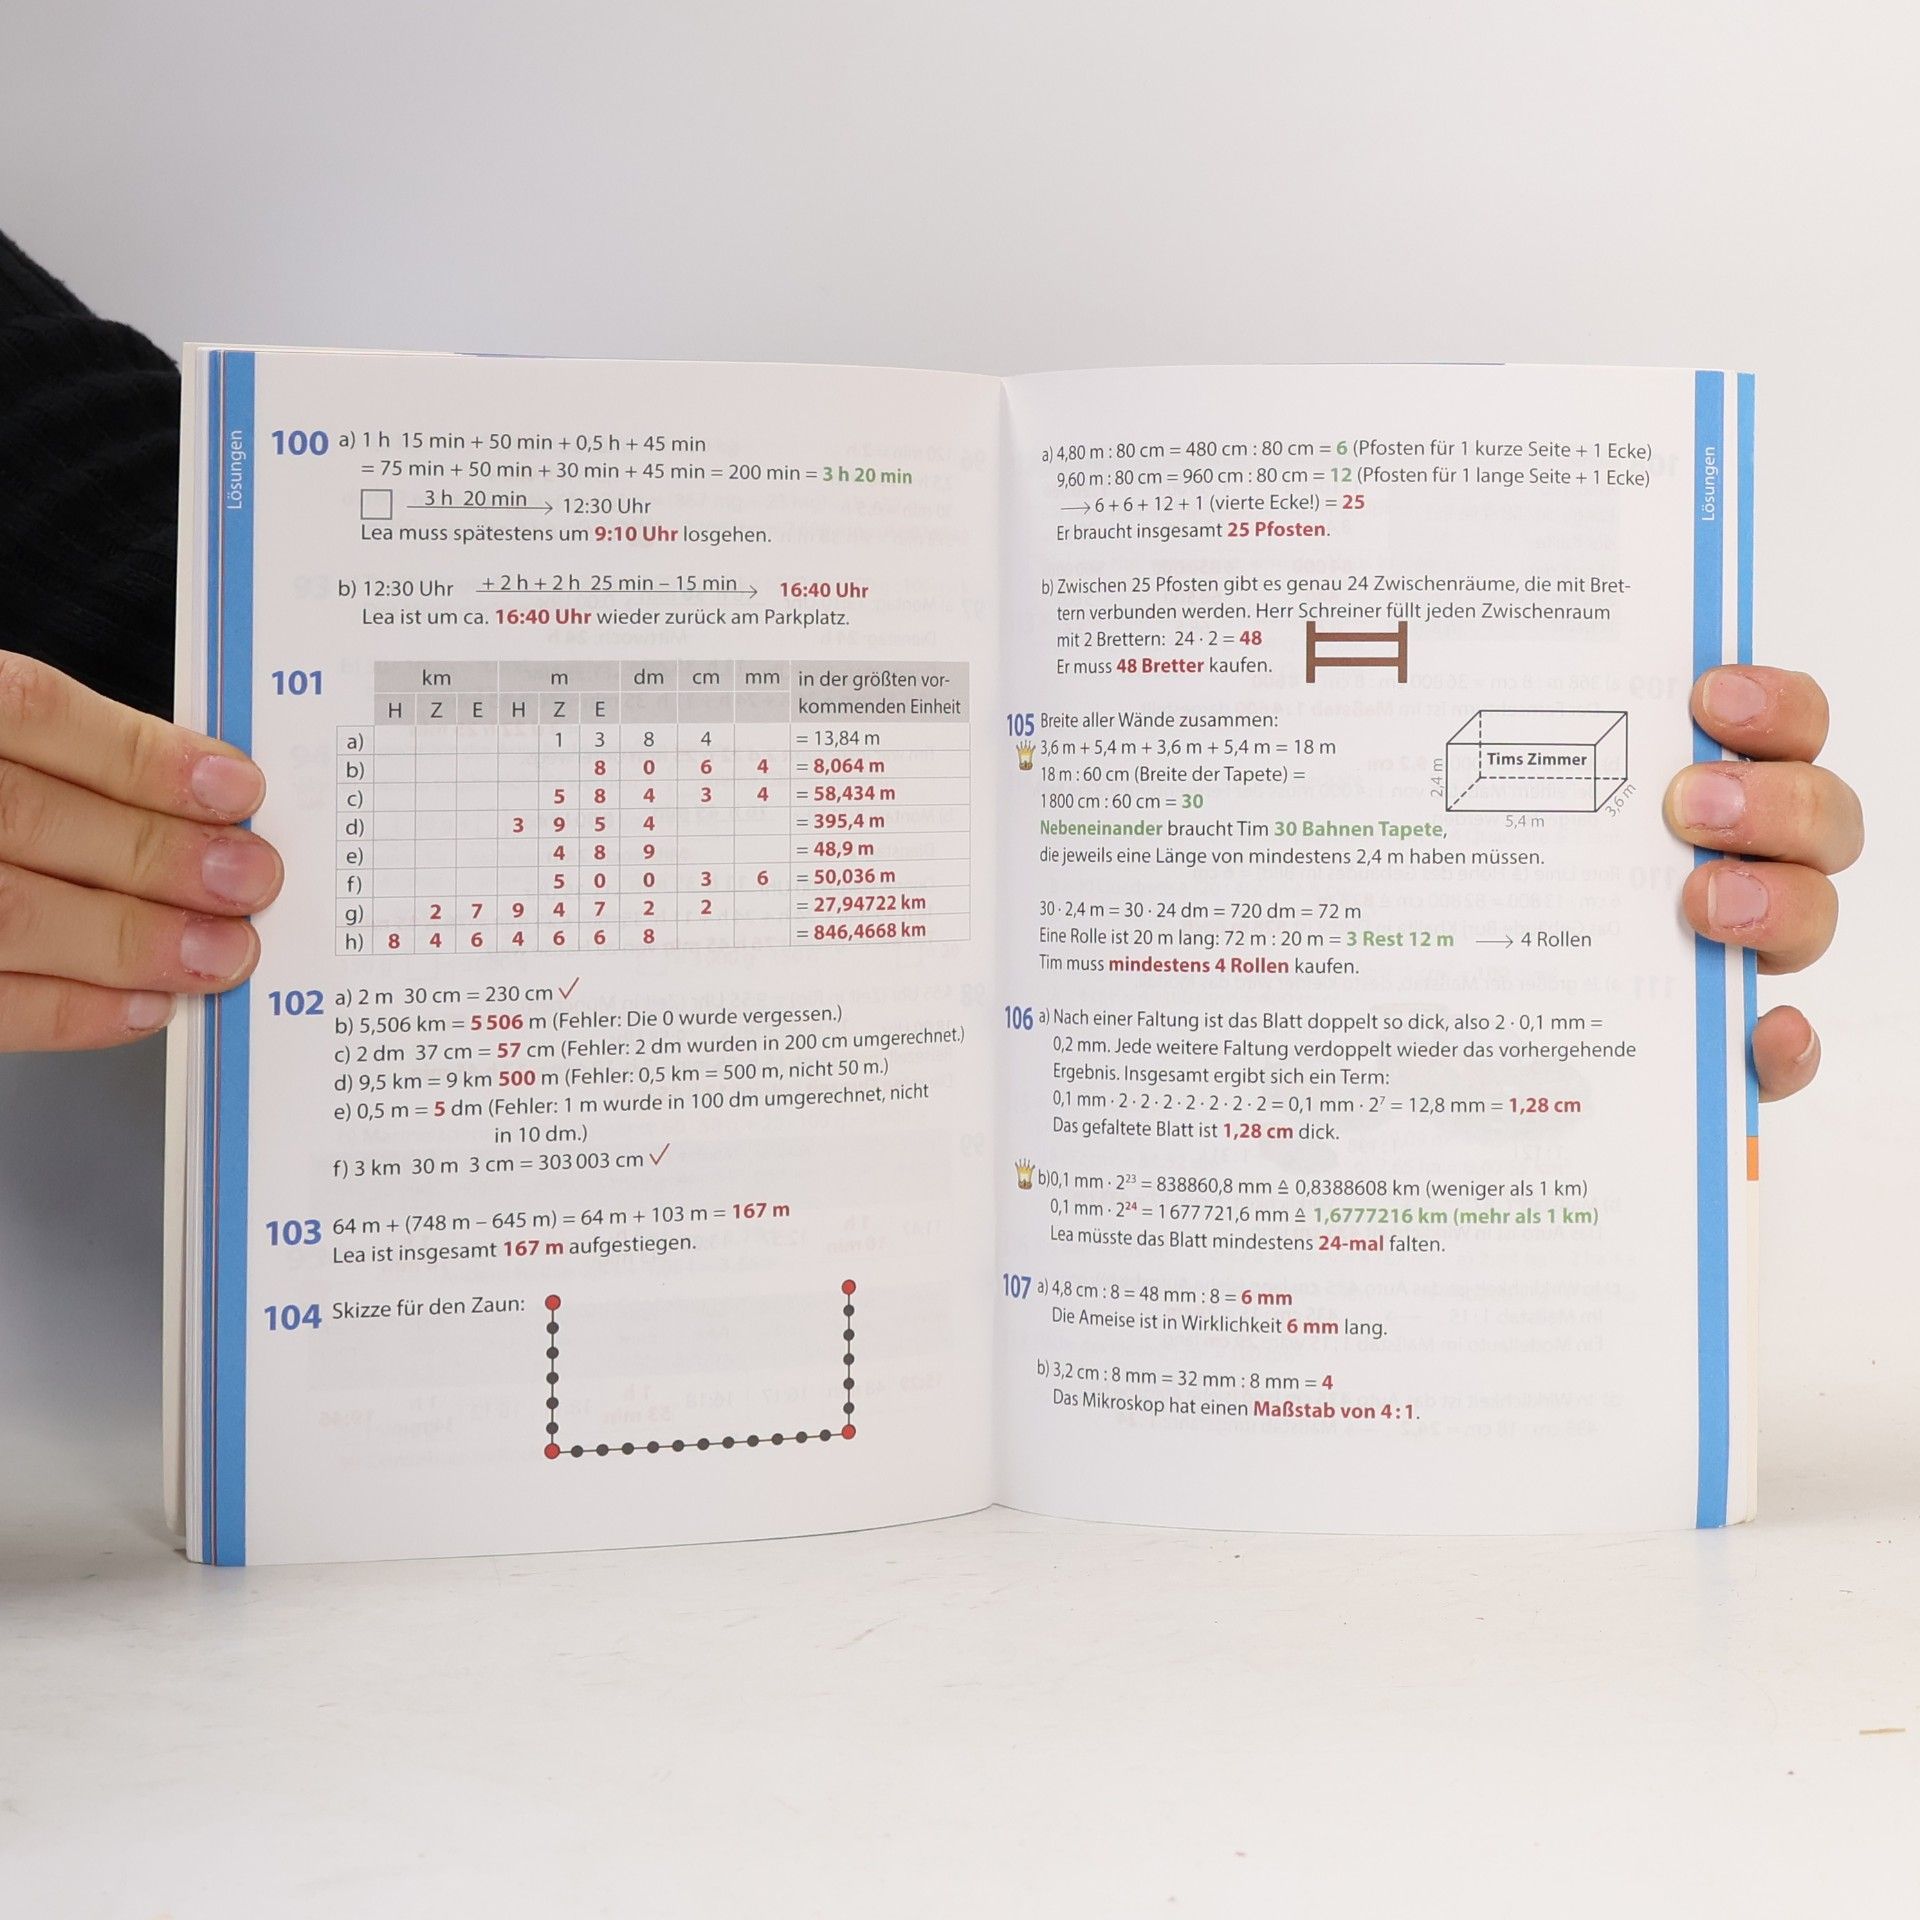 Lösungen
100 a) 1 h 15 min + 50 min + 0,5 h + 45 min
= 75 min + 50 min + 30 min + 45 min = 200 min = 3 h 20 min
3 h 20 min → 12:30 Uhr
Lea muss spätestens um 9:10 Uhr losgehen.
b) 12:30 Uhr + 2 h + 2 h 25 min – 15 min → 16:40 Uhr
Lea ist um ca. 16:40 Uhr wieder zurück am Parkplatz.
101 km m dm cm mm in der größten vor-
H Z E H Z E kommenden Einheit
a) 1 3 8 4 = 13,84 m
b) 8 0 6 4 = 8,064 m
c) 5 8 4 3 4 = 58,434 m
d) 3 9 5 4 = 395,4 m
e) 4 8 9 = 48,9 m
f) 5 0 0 3 6 = 50,036 m
g) 2 7 9 4 7 2 2 = 27,94722 km
h) 8 4 6 4 6 6 8 = 846,4668 km
102 a) 2 m 30 cm = 230 cm ✓
b) 5,506 km = 5 506 m (Fehler: Die 0 wurde vergessen.)
c) 2 dm 37 cm = 57 cm (Fehler: 2 dm wurden in 200 cm umgerechnet.)
d) 9,5 km = 9 km 500 m (Fehler: 0,5 km = 500 m, nicht 50 m.)
e) 0,5 m = 5 dm (Fehler: 1 m wurde in 100 dm umgerechnet, nicht
in 10 dm.)
f) 3 km 30 m 3 cm = 303 003 cm ✓
103 64 m + (748 m – 645 m) = 64 m + 103 m = 167 m
Lea ist insgesamt 167 m aufgestiegen.
104 Skizze für den Zaun:
a) 4,80 m : 80 cm = 480 cm : 80 cm = 6 (Pfosten für 1 kurze Seite + 1 Ecke)
9,60 m : 80 cm = 960 cm : 80 cm = 12 (Pfosten für 1 lange Seite + 1 Ecke)
→ 6 + 6 + 12 + 1 (vierte Ecke!) = 25
Er braucht insgesamt 25 Pfosten.
b) Zwischen 25 Pfosten gibt es genau 24 Zwischenräume, die mit Bret-
tern verbunden werden. Herr Schreiner füllt jeden Zwischenraum
mit 2 Brettern: 24 · 2 = 48
Er muss 48 Bretter kaufen.
105 Breite aller Wände zusammen:
3,6 m + 5,4 m + 3,6 m + 5,4 m = 18 m
18 m : 60 cm (Breite der Tapete) =
1 800 cm : 60 cm = 30
Nebeneinander braucht Tim 30 Bahnen Tapete,
die jeweils eine Länge von mindestens 2,4 m haben müssen.
Tims Zimmer
2,4 m
5,4 m
3,6 m
30 · 2,4 m = 30 · 24 dm = 720 dm = 72 m
Eine Rolle ist 20 m lang: 72 m : 20 m = 3 Rest 12 m → 4 Rollen
Tim muss mindestens 4 Rollen kaufen.
106 a) Nach einer Faltung ist das Blatt doppelt so dick, also 2 · 0,1 mm =
0,2 mm. Jede weitere Faltung verdoppelt wieder das vorhergehende
Ergebnis. Insgesamt ergibt sich ein Term:
0,1 mm · 2 · 2 · 2 · 2 · 2 · 2 · 2 = 0,1 mm · 2⁷ = 12,8 mm = 1,28 cm
Das gefaltete Blatt ist 1,28 cm dick.
b) 0,1 mm · 2²³ = 838860,8 mm ≙ 0,8388608 km (weniger als 1 km)
0,1 mm · 2²⁴ = 1 677 721,6 mm ≙ 1,6777216 km (mehr als 1 km)
Lea müsste das Blatt mindestens 24-mal falten.
107 a) 4,8 cm : 8 = 48 mm : 8 = 6 mm
Die Ameise ist in Wirklichkeit 6 mm lang.
b) 3,2 cm : 8 mm = 32 mm : 8 mm = 4
Das Mikroskop hat einen Maßstab von 4 : 1.
Lösungen